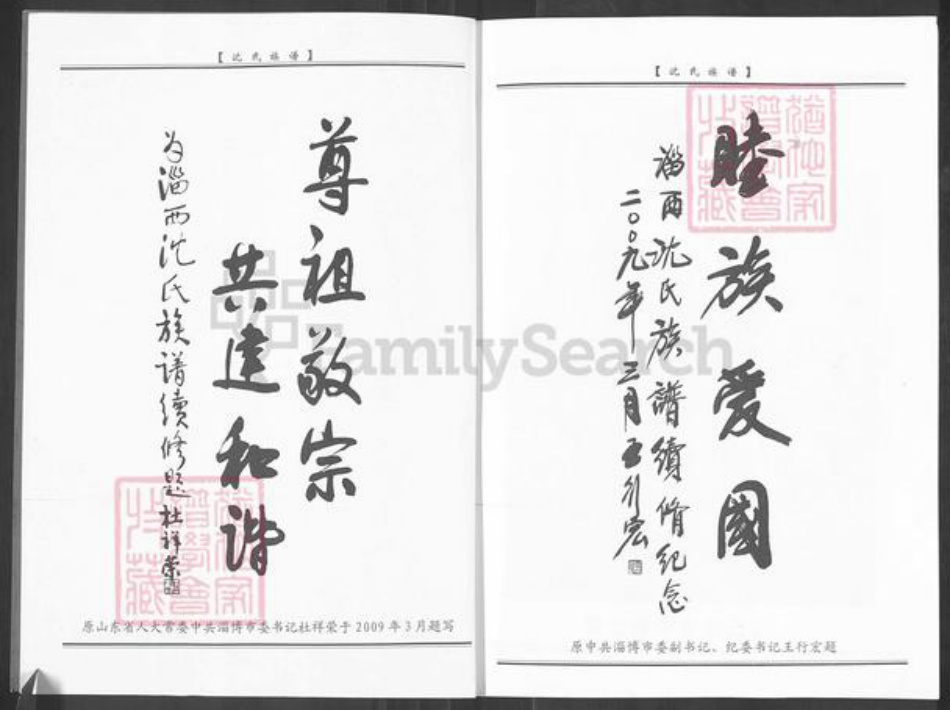 【沈氏族谱】
尊祖敬宗
共建和谐
为淄西沈氏族谱續修题 杜祥荣
原山东省人大常委中共淄博市委书记杜祥荣于2009年3月题写
【沈氏族谱】
睦族爱國
淄西沈氏族譜續脩纪念
二〇〇九年三月王行宏
原中共淄博市委副书记、纪委书记王行宏题
FamilySearch